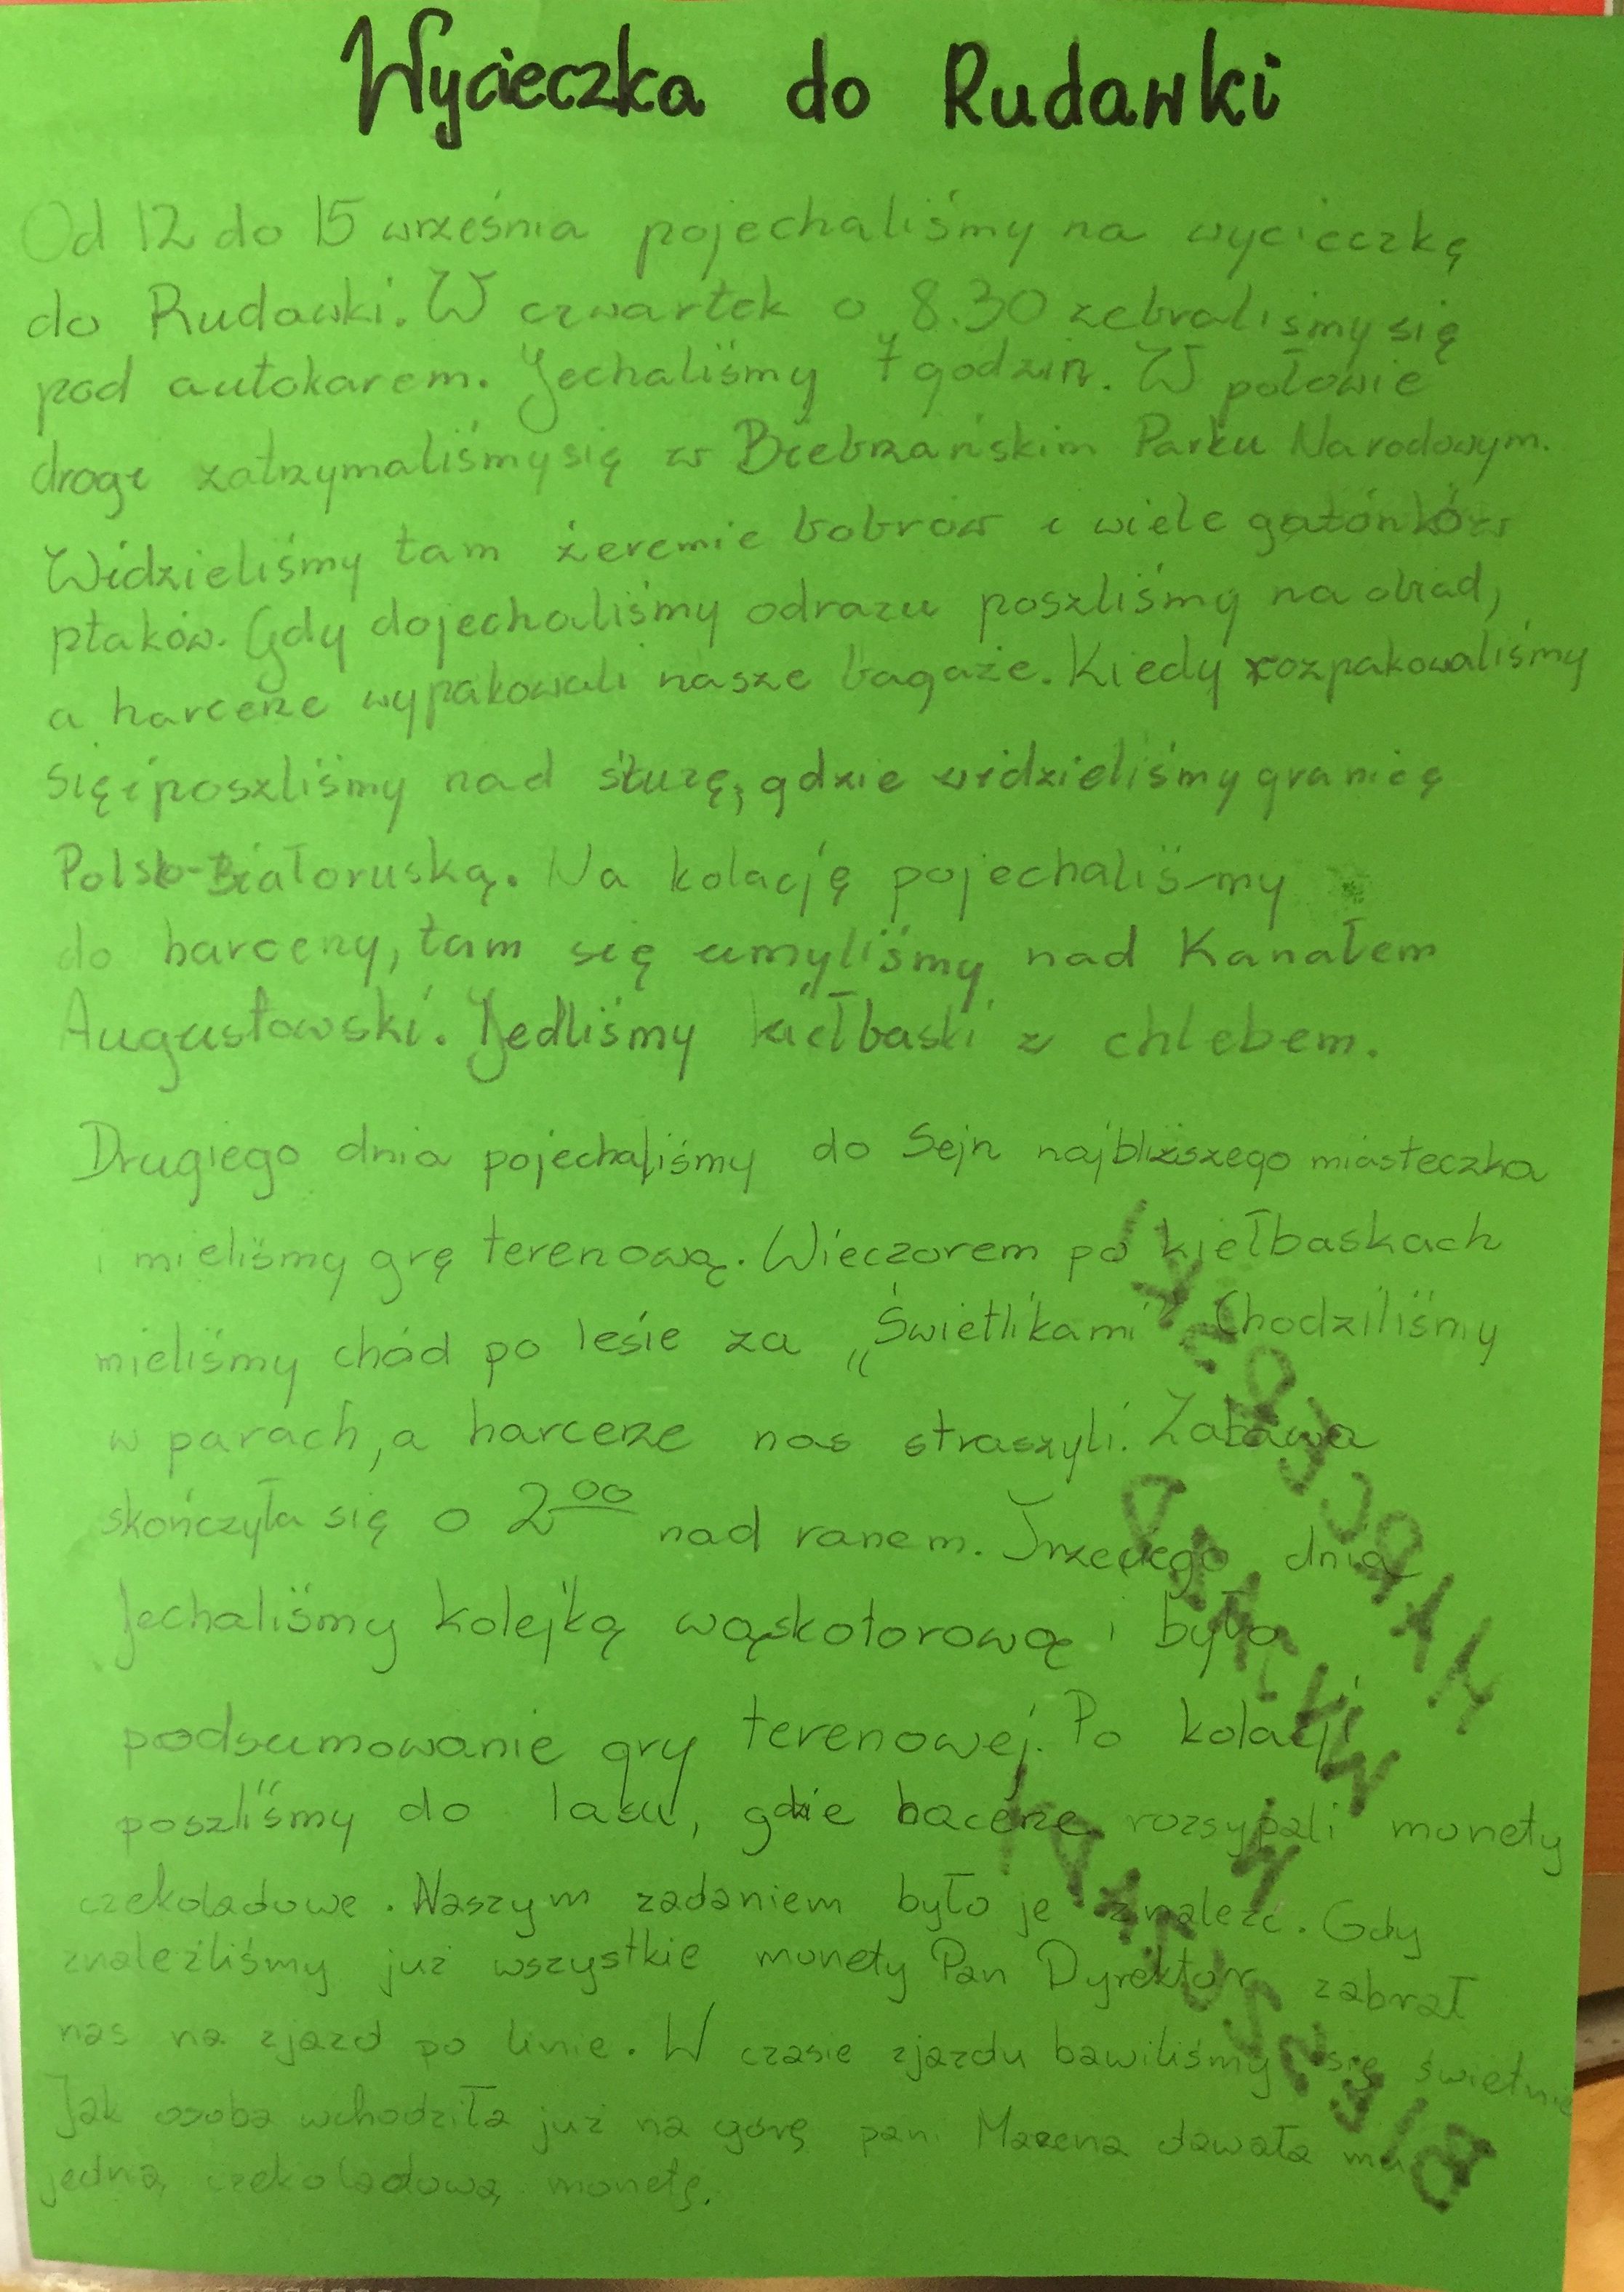 Wycieczka do Rudawki
Od 12 do 15 września pojechaliśmy na wycieczkę
do Rudawki. W czwartek o 8.30 zebraliśmy się
pod autokarem. Jechaliśmy 7 godzin. W połowie
drogi zatrzymaliśmy się w Biebrzańskim Parku Narodowym.
Widzieliśmy tam żeremie bobrów i wiele gatónków
ptaków. Gdy dojechaliśmy odrazu poszliśmy na obiad,
a harcerze wypakowali nasze bagaże. Kiedy rozpakowaliśmy
się i poszliśmy nad śluzę, gdzie widzieliśmy granicę
Polsko-Białoruską. Na kolację pojechaliśmy
do harceny, tam się umyliśmy nad Kanałem
Augustowski. Jedliśmy kiełbaski z chlebem.
Drugiego dnia pojechaliśmy do Sejn najbliższego miasteczka
i mieliśmy grę terenową. Wieczorem po kiełbaskach
mieliśmy chód po lesie za „Świetlikami" Chodziliśmy
w parach, a harcerze nas straszyli. Zabawa
skończyła się o 2⁰⁰ nad ranem. Trzeciego dnia
Jechaliśmy kolejką wąskotorową i było
podsumowanie gry terenowej. Po kolacji
poszliśmy do lasu, gdzie hacerze rozsypali monety
czekoladowe. Naszym zadaniem było je znaleźć. Gdy
znaleźliśmy już wszystkie monety Pan Dyrektor zabrał
nas na zjazd po linie. W czasie zjazdu bawiliśmy się świetnie
Jak osoba wchodziła już na górę pani Marzena dawała mu
jedną czekoladową monetę.